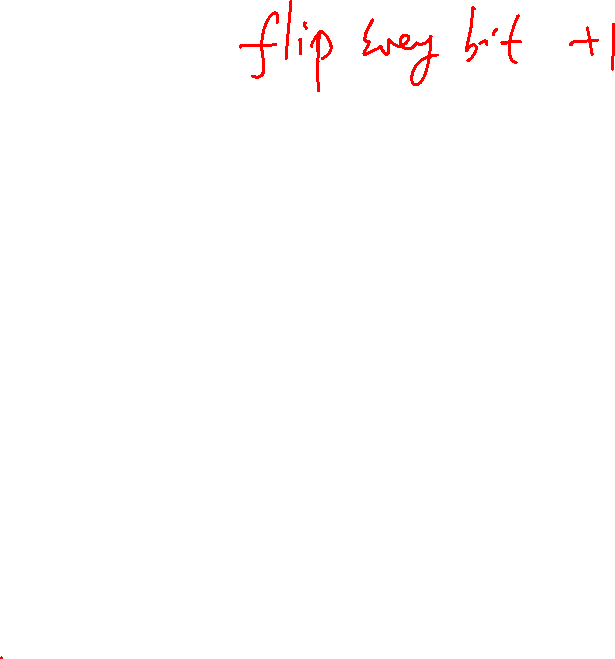 flip every bit +1